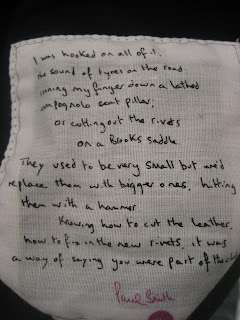 I was hooked on all of it.
the sound of tyres on the road
running my finger down a lathed
campagnolo seat pillar.
or cutting out the rivets
on a Brooks saddle
They used to be very small but we'd
replace them with bigger ones. hitting
them with a hammer
Knowing how to cut the leather.
how to fix in the new rivets, it was
a way of saying you were part of the club
Paul Smith